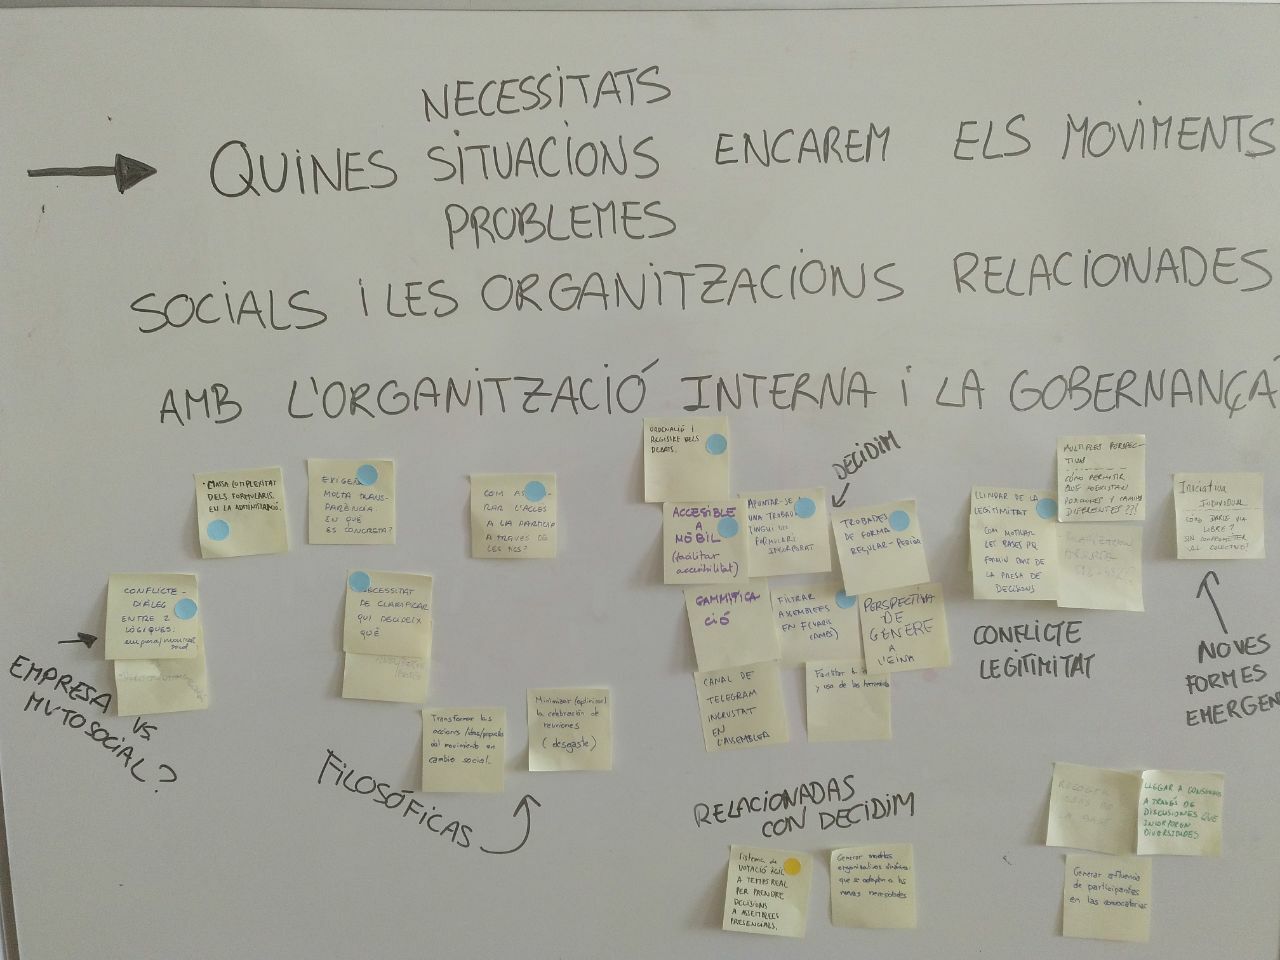 NECESSITATS
QUINES SITUACIONS ENCAREM ELS MOVIMENTS
PROBLEMES
SOCIALS I LES ORGANITZACIONS RELACIONADES
AMB L'ORGANITZACIÓ INTERNA I LA GOBERNANÇA
MASSA COMPLEXITAT
DELS FORMULARIS.
EN LA ADMINISTRACIÓ.
MOLTA TRANS-
PARÈNCIA.
EN QUÈ
ES CONCRETA?
COM
L'ACCÉS
A LA PARTICIPA
A TRAVÉS DE
LES TICS?
ORDENACIÓ I
REGISTRE DELS
DEBATS.
ACCESSIBLE
A
MÒBIL
(facilitar
accesibilitat)
APUNTAR-SE
UNA TROBADA
TINGUI UN
FORMULARI
INCORPORAT
DECIDIM
TROBADES
DE FORMA
REGULAR-
LLINDAR DE LA
LEGITIMITAT
COM MOTIVAR
LES BASES PQ
FORMIN PART DE
LA PRESA DE
DECISIONS
MULTIPLES PERSPEC-
TIVAS
CÓMO PERMITIR
QUE COEXISTAN
POSICIONES Y CAMINOS
DIFERENTES???!
Iniciativa
INDIVIDUAL
COMO DARLE VIA
LIBRE?
SIN COMPROMETER
AL COLECTIVO!
CONFLICTE-
DIÀLEG
ENTRE 2
LÒGIQUES.
empresa/moviment
social
NECESSITAT
DE CLARIFICAR
QUI DECIDEIX
QUÈ
GAMMIFICA-
CIÓ
FILTRAR
ASSEMBLEES
EN F(VARIS
CAMPS)
PERSPECTIVA
DE
GÈNERE
A
L'EINA
CONFLICTE
LEGITIMITAT
NOVES
FORMES
EMERGEN
EMPRESA
VS
MVTOSOCIAL?
CANAL DE
TELEGRAM
INCRUSTAT
EN
L'ASSEMBLEA
Facilitar
y uso de las
Transformar las
acciones/ideas/proyectos
del movimiento en
cambio social.
Minimizar (optimizar)
la celebración de
reuniones
(desgaste)
FILOSÓFICAS
RELACIONADAS
CON DECIDIM
LLEGAR A CONSENSOS
A TRAVÉS DE
DISCUSIONES QUE
INCORPOREN
DIVERSIDADES
Sistema de
VOTACIÓ ÀGIL
A TEMPS REAL
PER PRENDRE
DECISIONS
A ASSEMBLEES
PRESENCIALS.
Generar modelos
organizativos dinámicos
que se adapten a las
nuevas necesidades
Generar afluencia
de participantes
en las convocatorias